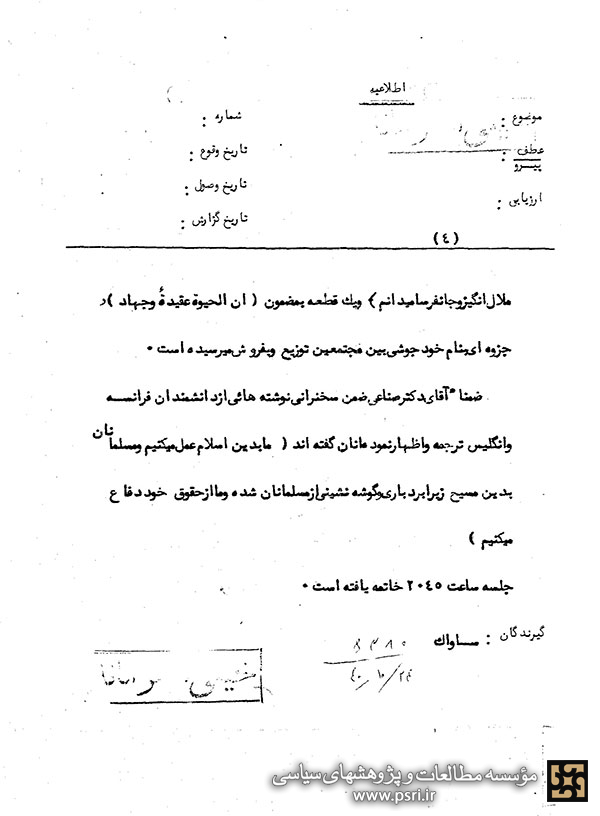 اطلاعیه
موضوع :
شماره :
عطف
پیرو :
تاریخ وقوع :
تاریخ وصول :
ارزیابی :
تاریخ گزارش :
(٤)
ملال انگیز و جانفرسا میدانم ) ویك قطعه بمضمون ( ان الحیوة عقیدةٌ وجهاد ) و
جزوه ای بنام خود جوشی بین مجتمعین توزیع وبفروش میرسیده است ٠
ضمنا " آقای دکتر صناعی ضمن سخنرانی نوشته هائی از دانشمندان فرانسه
وانگلیس ترجمه واظهار نموده مانان گفته اند ( ما بدین اسلام عمل میکنیم ومسلمانان
بدین مسیح زیرا بردباری وگوشه نشینی از مسلمانان شده وما از حقوق خود دفاع
میکنیم )
جلسه ساعت ٢٠٤٥ خاتمه یافته است ٠
گیرندگان : ساواك
٤٠/١٠/٢٤
مؤسسه مطالعات و پژوهشهای سیاسی
www.psri.ir